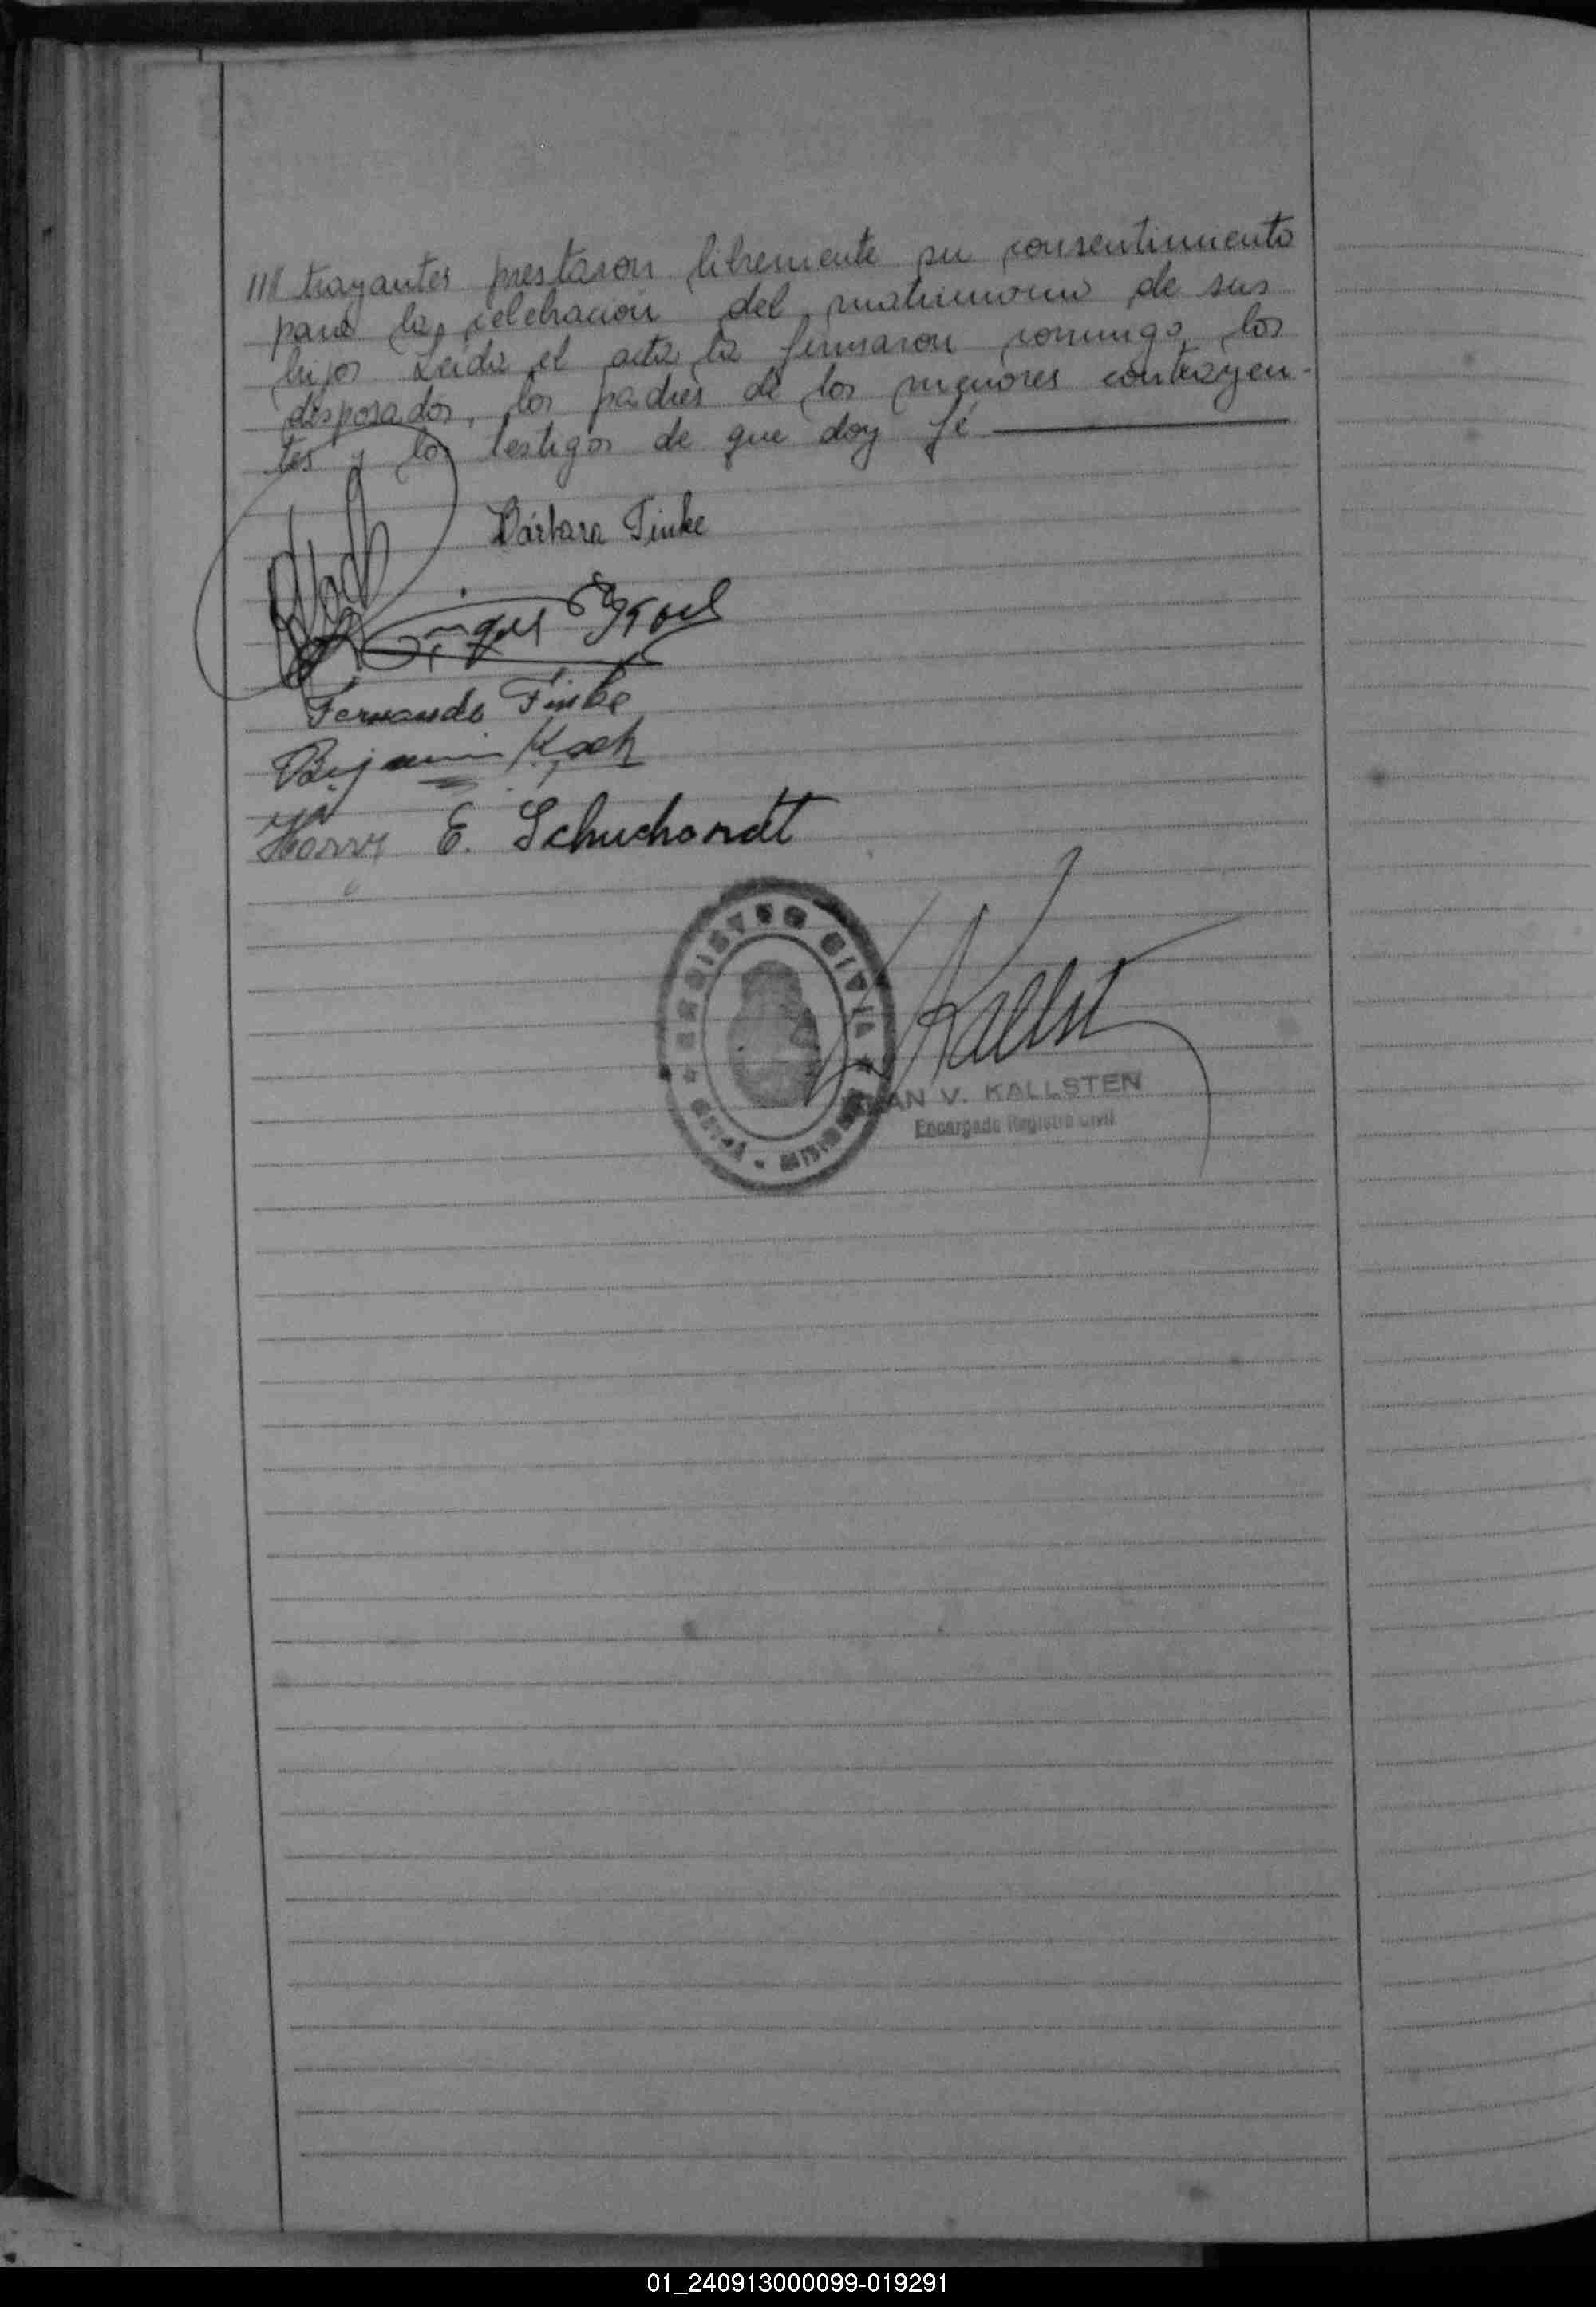 /// trayantes prestaron libremente su consentimiento
para la celebracion del matrimonio de sus
hijos Leida el acta la firmaron conmigo, los
desposados, los padres de los menores contrayen-
tes y los testigos de que doy fé
Bárbara Finke
Fernando Finke
Koch
Harry E. Schuchardt
REGISTRO CIVIL
MISIONES
Kallst
V. KALLSTEN
Encargado Registro Civil
01_240913000099-019291